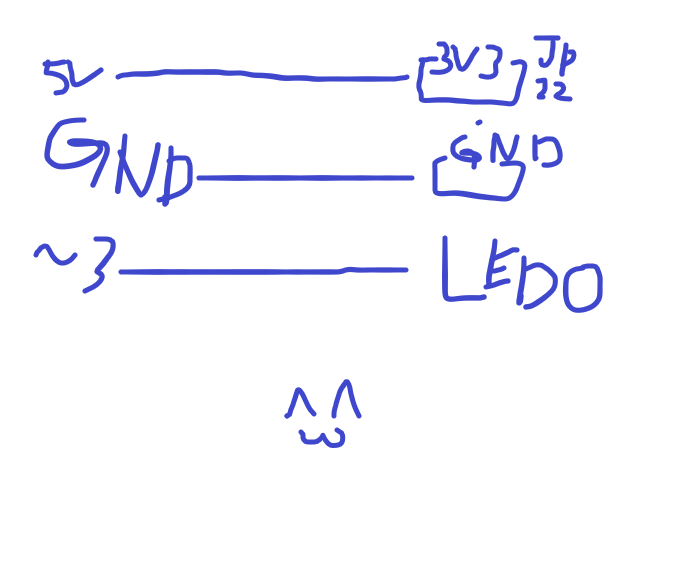 5V 3V3 JP
22
GND GND
~3 LED0
^ ^
ω